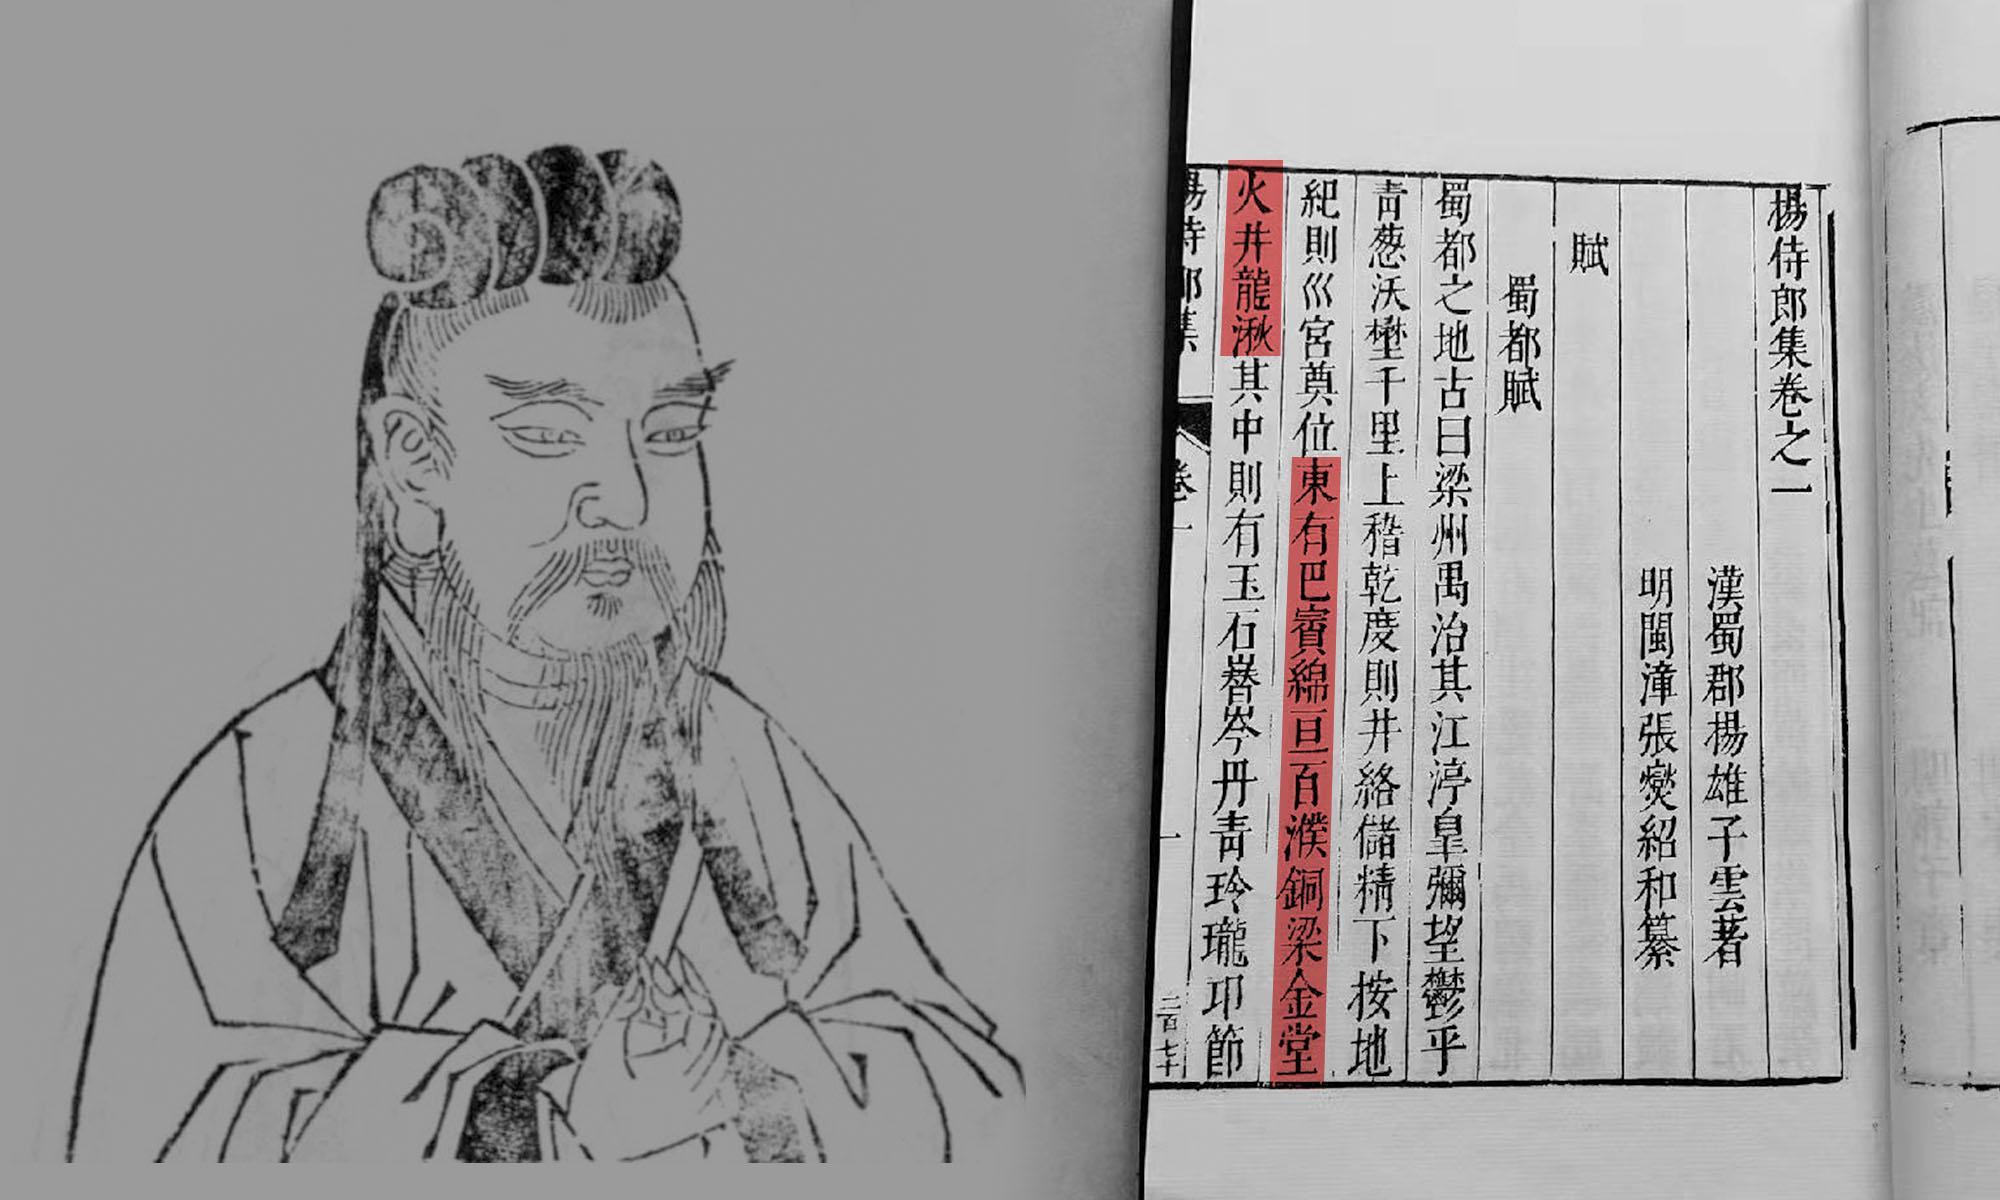 楊侍郎集卷之一
漢蜀郡楊雄子雲著
明閩漳張燮紹和纂
賦
蜀都賦
蜀都之地古曰梁州禹治其江渟皐彌望鬱乎
青葱沃壄千里上稽乾度則井絡儲精下按地
紀則巛宮奠位東有巴賨綿亘百濮銅梁金堂
火井龍湫其中則有玉石嶜岑丹青玲瓏邛節
楊侍郎集
卷一
一
二百七十